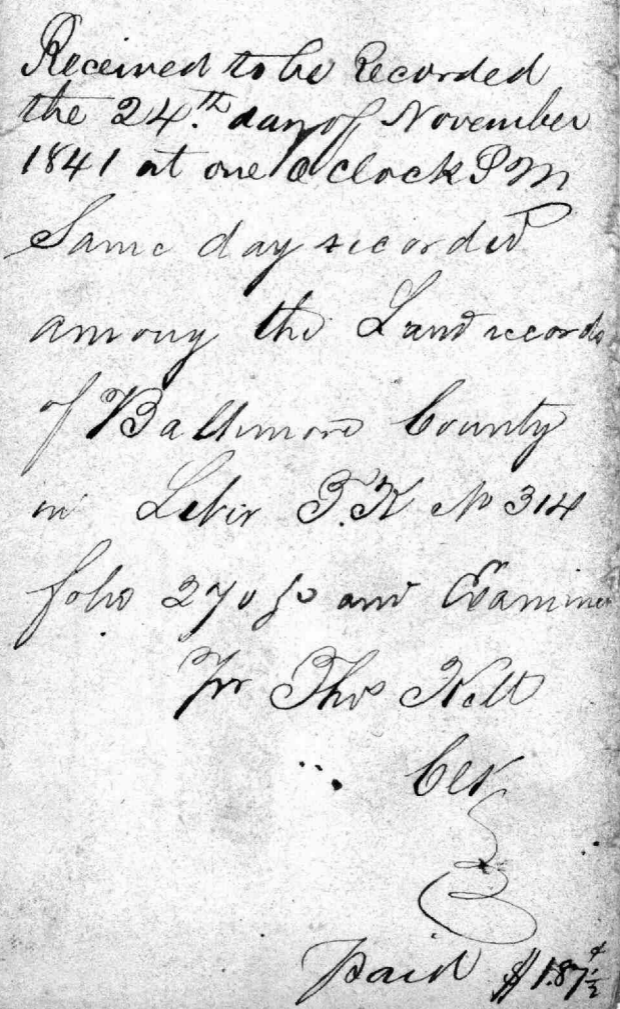 Received to be Recorded
the 24.th day of November
1841 at one O clock P M
Same day recorded
among the Land records
of Baltimore County
in Liber T.K No 314
folio 270 &c and Examined
Pr Thos Kell
Clk
paid $1.87½